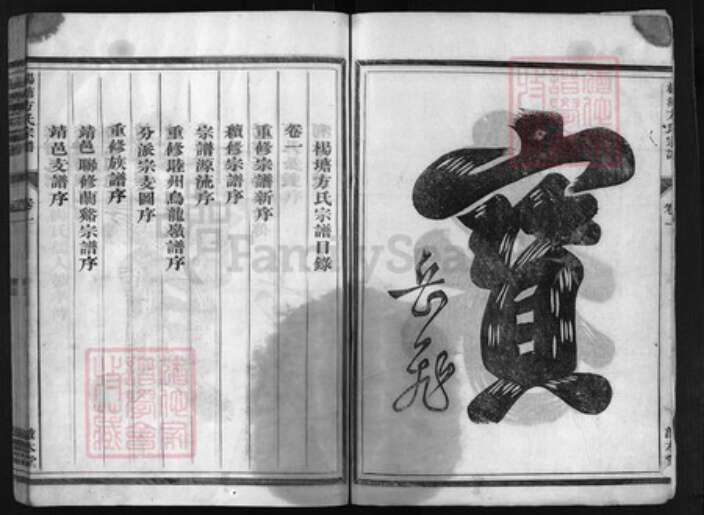 寶
岳飛
楊塘方氏宗譜目錄
卷一
重修宗譜新序
續修宗譜序
宗譜源流序
重修睦州烏龍嶺譜序
分派宗支圖序
重修族譜序
靖邑聯修蘭谿宗譜序
靖邑支譜序
楊塘方氏宗譜
卷一
FamilySearch